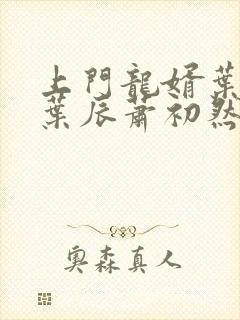 上門龍婿葉
葉辰蕭初然
奧森真人